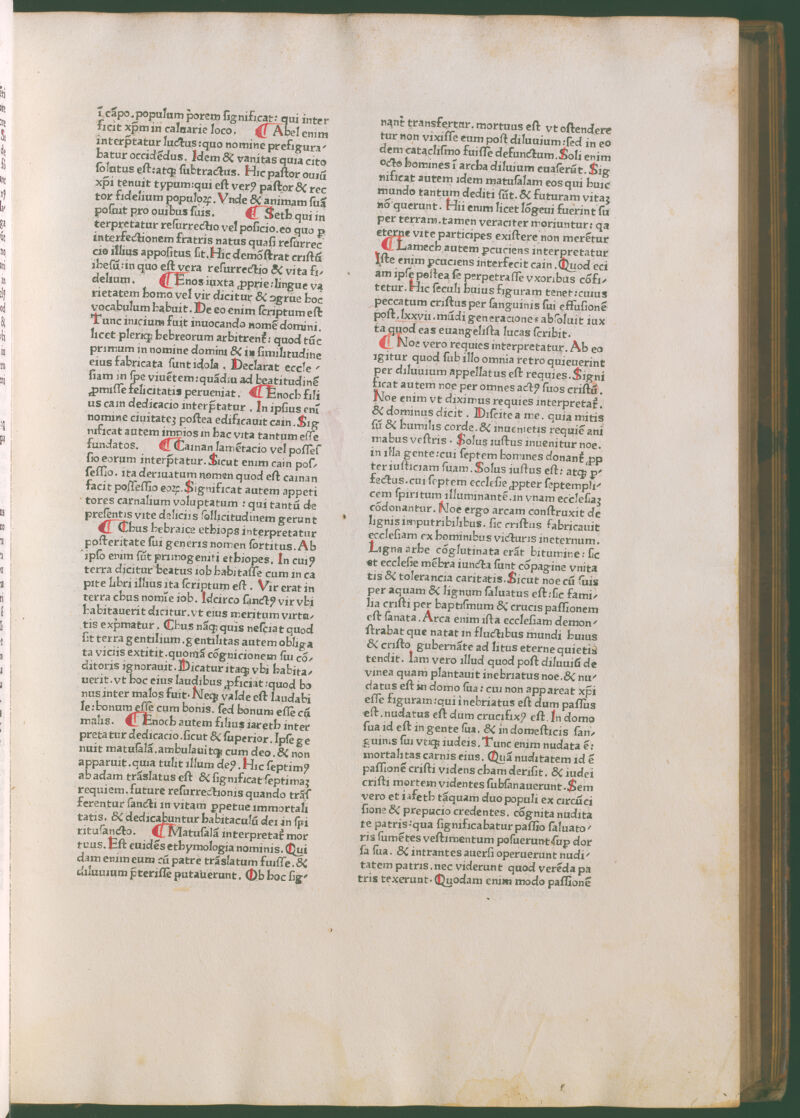 ī cāpo. populum porem significat: qui inter
ficit xp̄m in caluarie loco. ¶ Abel enim
interp̄tatur luctus: quo nomine prefigura⸗
batur occidēdus. Idem & vanitas quia cito
solutus est: atqꝫ subtractus. Hic pastor ouiū
xp̄i tenuit typum: qui est verꝰ pastor & rec
tor fidelium populoꝝ. Vnde & animam suā
posuit pro ouibus suis. ¶ Seth qui in
terpretatur resurrectio vel posicio. eo quo p
interfectionem fratris natus quasi resurrec
cio illius appositus sit. Hic demōstrat cristū
ihesū: in quo est vera resurrectio & vita fi⸗
delium. ¶ Enos iuxta ꝓprie: lingue va
rietatem homo vel vir dicitur & ꝯgrue hoc
vocabulum habuit. De eo enim scriptum est
Tunc inicium fuit inuocando nomē domini.
licet pleriqꝫ hebreorum arbitrent̄: quod tūc
primum in nomine domini & in similitudine
eius fabricata sunt idola. Declarat eccle⸗
siam in spe viuētem: quādiu ad beatitudinē
ꝓmisse felicitatis perueniat. ¶ Enoch fili
us cain dedicacio interp̄tatur. In ipsius enī
nomine ciuitateꝫ postea edificauit cain. Sig
nificat autem impios in hac vita tantum esse
fundatos. ¶ Cainan lamētacio vel posses
sio eorum interp̄tatur. Sicut enim cain pos⸗
sessio. ita deriuatum nomen quod est cainan
facit possessio eoꝝ. Significat autem appeti
tores carnalium voluptatum: qui tantū de
presentis vite deliciis sollicitudinem gerunt
¶ Chus hebraice ethiops interpretatur
posteritate sui generis nomen sortitus. Ab
ipso enim sūt primogeniti ethiopes. In cuiꝰ
terra dicitur beatus iob habitasse cum in ca
pite libri illius ita scriptum est. Vir erat in
terra chus nomie iob. Idcirco sanctꝰ vir vbi
habitauerit dicitur. vt eius meritum virtu⸗
tis exp̄matur. Chus nāqꝫ quis nesciat quod
sit terra gentilium. gentilitas autem obliga
ta viciis extitit. quoniā cōgnicionem sui cō⸗
ditoris ignorauit. Dicatur itaqꝫ vbi habita⸗
uerit. vt hoc eius laudibus ꝓficiat: quod bo
nus inter malos fuit. Neqꝫ valde est laudabi
le: bonum esse cum bonis. sed bonum esse cū
malis. ¶ Enoch autem filius iareth inter
pretatur dedicacio. sicut & superior. Ipse ge
nuit matusalā. ambulauitqꝫ cum deo. & non
apparuit. quia tulit illum deꝰ. Hic septimꝰ
ab adam trāslatus est & significat septimaꝫ
requiem. future resurrectionis quando trās
ferentur sancti in vitam ꝑpetue immortali
tatis. & dedicabuntur habitaculū dei in spi
ritu sancto. ¶ Matusalā interpretat̄ mor
tuus. Est euidēs ethymologia nominis. Qui
dam enim eum cū patre trāslatum fuisse. &
diluuium p̄terisse putauerunt. Ob hoc sig⸗
nant̄ transfertur. mortuus est vt ostendere
tur non vixisse eum post diluuium: sed in eo
dem cataclismo fuisse defunctum. Soli enim
octo homines ī archa diluuium euaserūt. Sig
nificat autem idem matusalam eos qui huic
mundo tantum dediti sūt. & futuram vitaꝫ
nō querunt. Hii enim licet lōgeui fuerint su
per terram. tamen veraciter moriuntur: qa
eterne vite participes existere non merētur
¶ Lamech autem ꝑcuciens interpretatur
Iste enim ꝑcuciens interfecit cain. Quod eci
am ipse postea se perpetrasse vxoribus cōfi⸗
tetur. Hic seculi huius figuram tenet: cuius
peccatum cristus per sanguinis sui effusionē
post. lxxvii. mūdi generaciones absoluit iux
ta quod eas euangelista lucas scribit.
¶ Noe vero requies interpretatur. Ab eo
igitur quod sub illo omnia retro quieuerint
per diluuium appellatus est requies. Signi
ficat autem noe per omnes actꝰ suos cristū.
Noe enim vt diximus requies interpretat̄.
& dominus dicit. Discite a me. quia mitis
sū & humilis corde. & inuenietis requiē ani
mabus vestris. Solus iustus inuenitur noe.
in illa gente: cui septem homines donant̄ ꝓp
ter iusticiam suam. Solus iustus est: atqꝫ ꝑ⸗
fectus. cui septem ecclesie ꝓpter septempli⸗
cem spiritum illuminantē. in vnam ecclesiaꝫ
cōdonantur. Noe ergo arcam construxit de
lignis imputribilibus. sic cristus fabricauit
ecclesiam ex hominibus victuris ineternum.
Ligna arbe cōglutinata erāt bitumine: sic
et ecclesie mēbra iuncta sunt cōpagine vnita
tis & tolerancia caritatis. Sicut noe cū suis
per aquam & lignum saluatus est: sic fami⸗
lia cristi per baptismum & crucis passionem
est sanata. Arca enim ista ecclesiam demon⸗
strabat que natat in fluctibus mundi huius
& cristo gubernāte ad litus eterne quietis
tendit. Iam vero illud quod post diluuiū de
vinea quam plantauit inebriatus noe. & nu⸗
datus est in domo sua: cui non appareat xp̄i
esse figuram: qui inebriatus est dum passus
est. nudatus est dum crucifixꝰ est. In domo
sua id est in gente sua. & in domesticis san⸗
guinis sui vtiqꝫ iudeis. Tunc enim nudata ē:
mortalitas carnis eius. Quā nuditatem id ē
passionē cristi videns cham derisit. & iudei
cristi mortem videntes subsanauerunt. Sem
vero et iafeth tāquam duo populi ex circūci
sione & prepucio credentes. cōgnita nudita
te patris: qua significabatur passio saluato⸗
ris sumētes vestimentum posuerunt sup dor
sa sua. & intrantes auersi operuerunt nudi⸗
tatem patris. nec viderunt quod verēda pa
tris texerunt. Quodam enim modo passionē